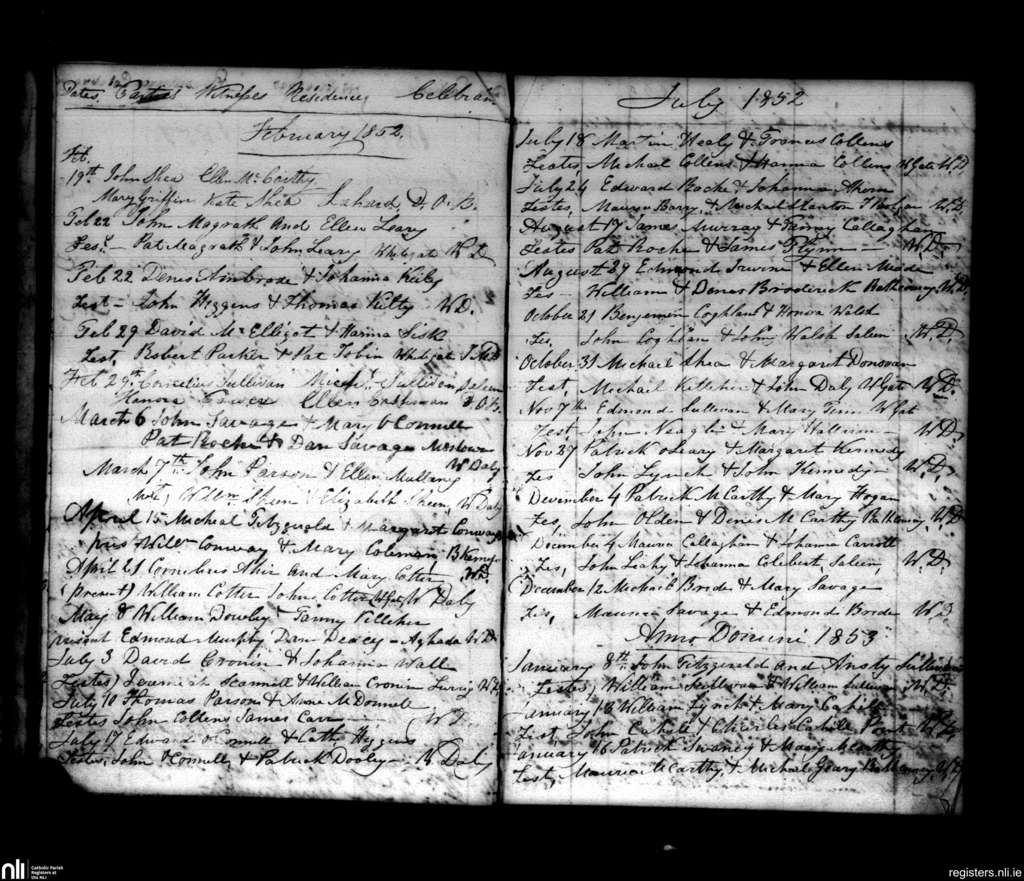 Dates Parties Witnesses Residence Celebrant
February 1852
Feb.
19th John Shea Ellen McCarthy
Mary Griffin Kate Shea Lahard D. O.
Feb 22 John Magrath and Ellen Leary
Pat Magrath & John Leary Whitegate W D
Feb 22 Denis Ambrose & Johanna Kiely
Test - John Higgins & Thomas Kilty W.D.
Feb 29 David McElligot & Hanna Sisk
Test, Robert Parker & Pat Tobin
Feb 29th Cornelius Sullivan Michl Sullivan Saleen
Hanora Ellen
March 6 John Savage & Mary O Connell
Pat Roche & Dan Savage
W Daly
March 7th John Parson & Ellen
Willm Sheen Elizabeth Sheen, W Daly
April 15 Micheal Fitzgerald & Margaret Conway
pres Willm Conway & Mary Coleman
April 21 Cornelius Ahir and Mary Cotter W.D.
(present) William Cotter John Cotter W Daly
May 8 William Dowley Fanny Killeher
present Edmond Murphy Dan Deacy - Aghada W D
July 3 David Cronin & Johanna Wall
Testes) Jeremiah Scannell & William Cronin W D
July 10 Thomas Parson & Anne McDonnell
Testes John Collens James Carr W D
July 17 Edward O Connell & Cath Higgins
Testes, John O Connell, & Patrick Dooley - W Daly
July 1852
July 18 Martin Healy & Frances Collens
Testes, Michael Collens & Hanna Collens W Gate W.D
July 24 Edward Roche & Johanna Ahern
Testes, Maurice Barry & Michael Stanton W.D
August 17 James Murray & Fanny Callaghan
Testes Pat Roche & James Flynn - W.D.
August 29 Edmond Irwine & Ellen Meade
Tes - William & Denis Broderick Ratheny W.D.
October 21 Benjemin Coghlan & Honora Walsh
Tes, John Coghlan & John Walsh Saleen W.D.
October 31 Michael Shea & Margaret Donovan
Test, Michael Killeher & John Daly W Gate W D.
Nov 7th Edmond Sullivan & Mary Finn W gat
Test John Neagle & Mary Hallinan - W D.
Nov 27 Patrick O Leary & Margaret Kennedy
Tes John Lynch & John Kennedy W. D.
December 4 Patrick McCarthy & Mary Hogan
Tes, John Olden & Denis McCarthy W D
December 4 Maurice Callaghan & Johanna Carroll
Tes, John Leahy & Johanna Colebert, Saleen, W. D.
December 12 Michael Brode & Mary Savage
Tes, Maurice Savage & Edmond Brode W. D
Anno Domini 1853
January 8th John Fitzgerald and Ansty Sullivan
Testes, William Sullivan & William Sullivan W. D.
January 13 William Lynch & Mary Cahill
Test John Cahill & Charles Cahill W. D
January 16 Patrick Swaney & Mary McCarthy
Test, Maurice McCarthy & Michael Geary W D
nli
Catholic Parish
Registers at
the NLI
registers.nli.ie